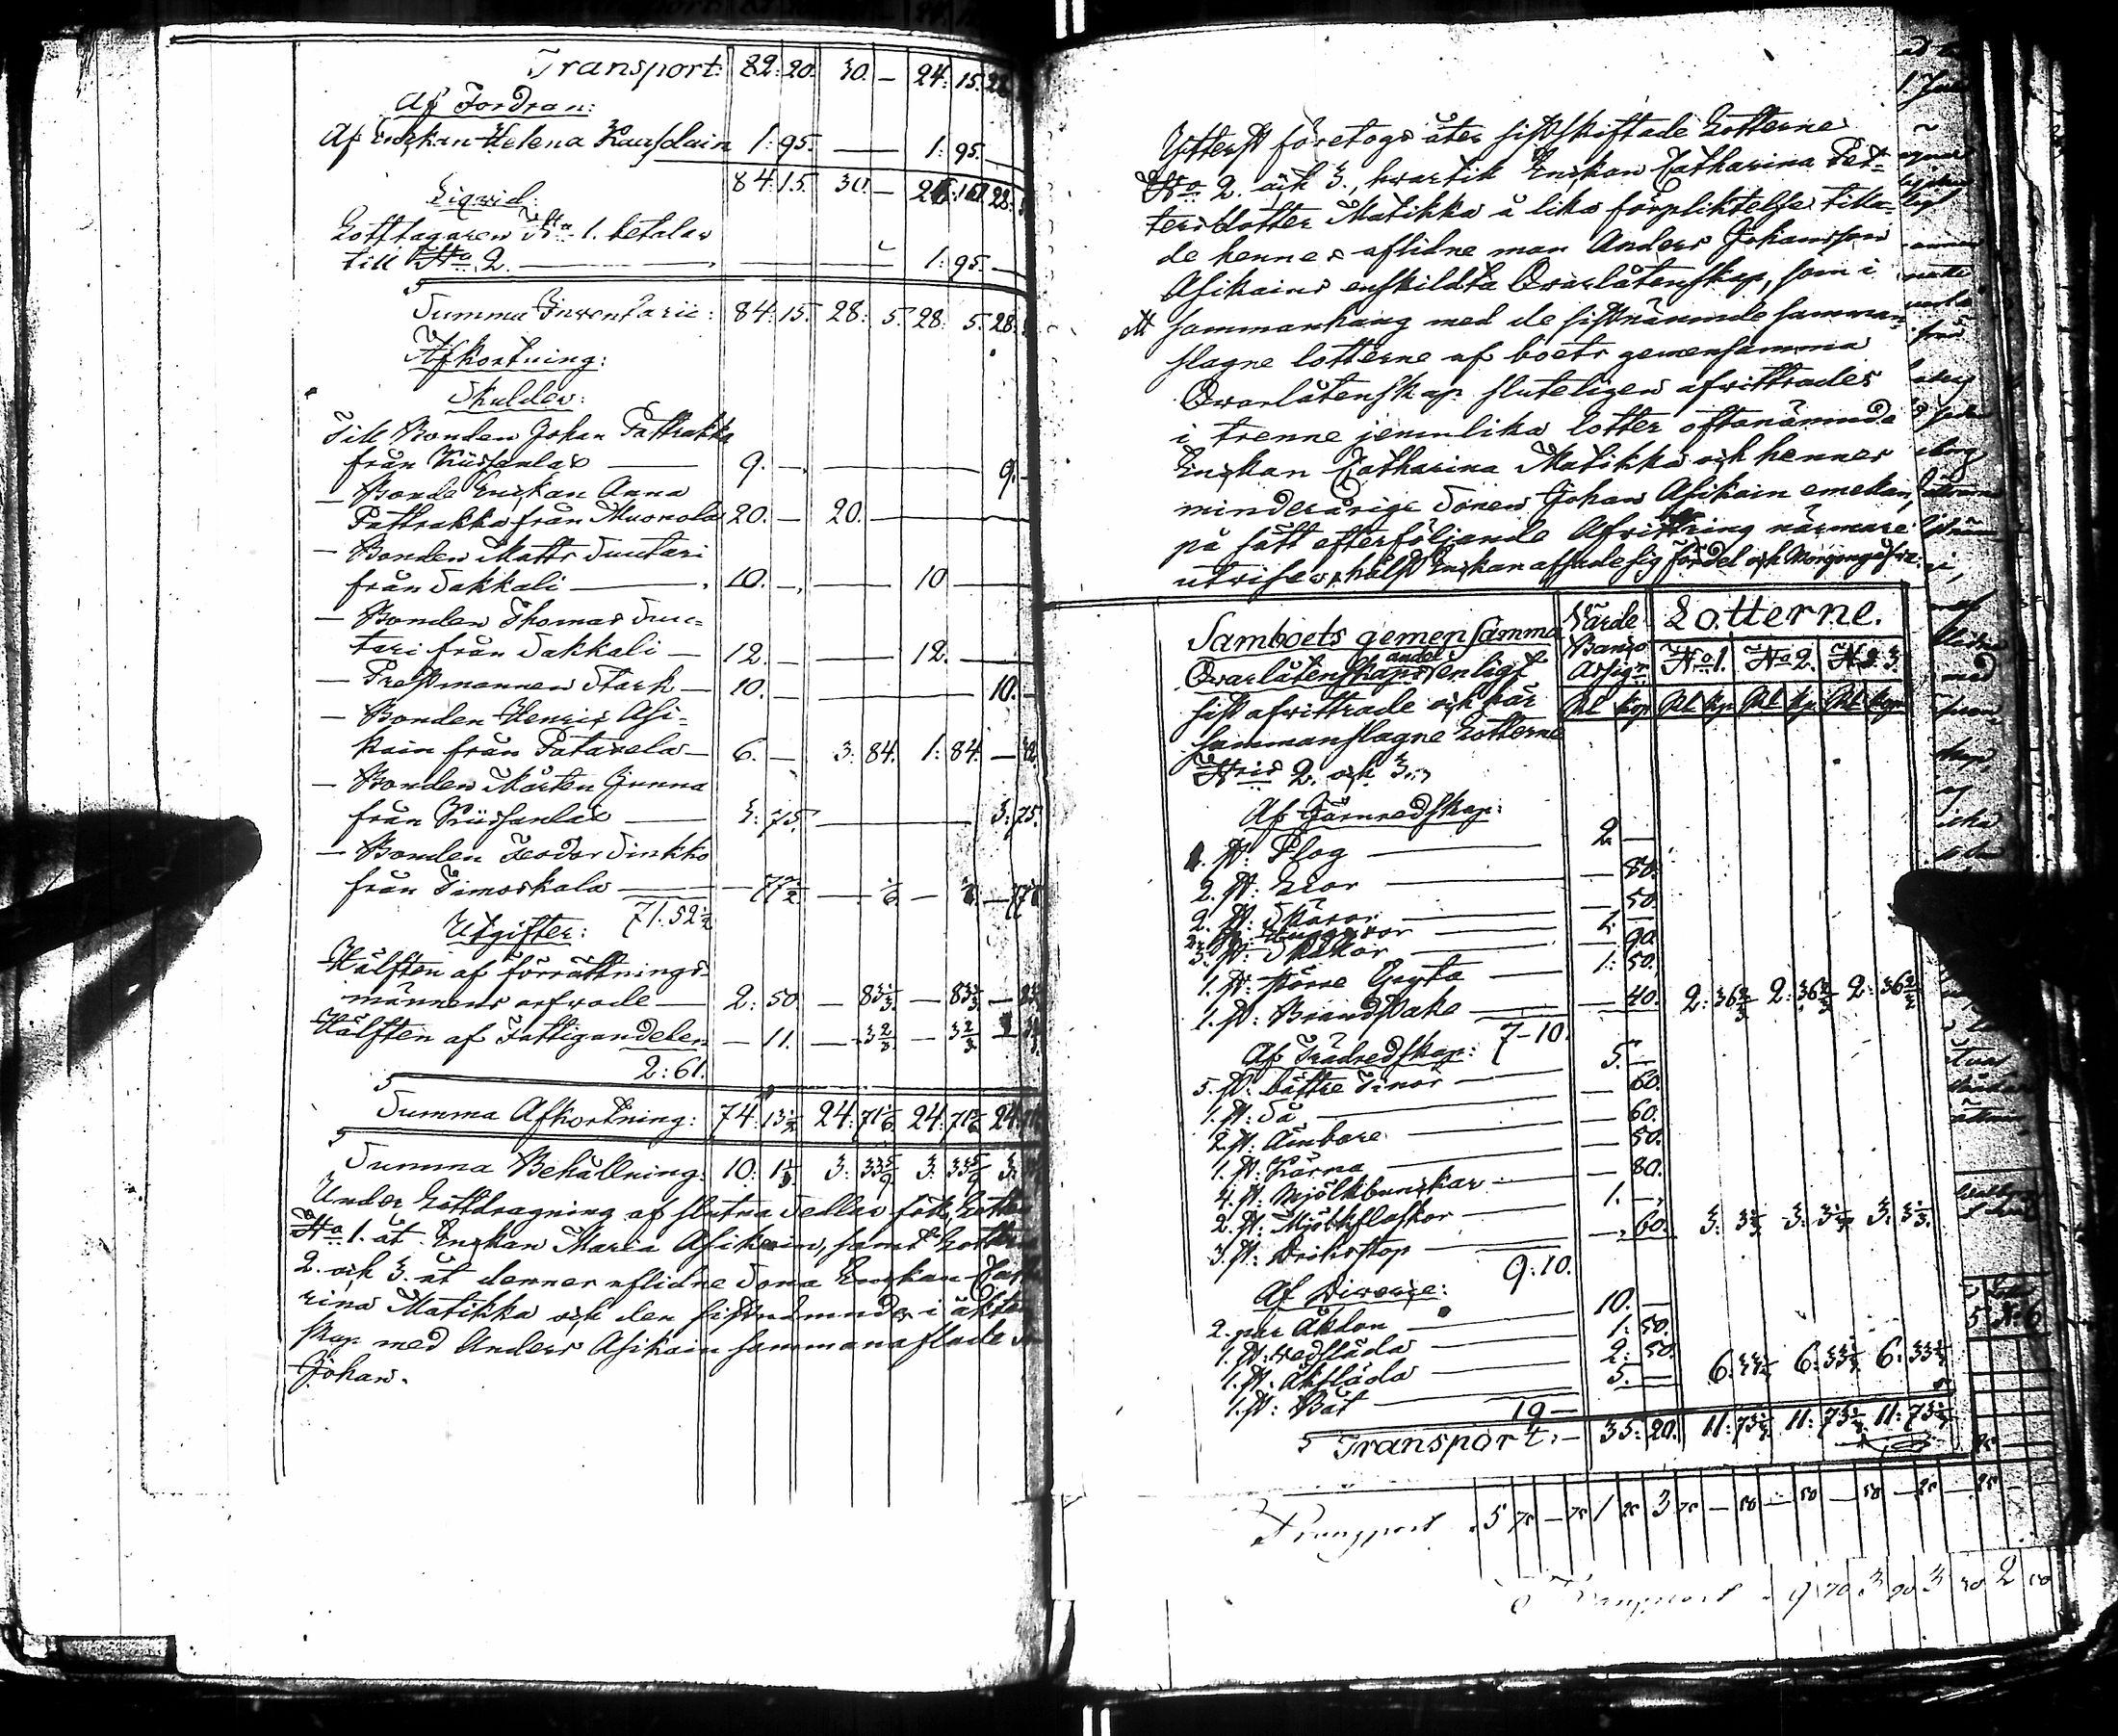 Transport: 82: 20. 30. — 24: 15. 28
Af Fordran:
Af Enckan Helena Kaasalain 1: 95. — 1: 95. —
84: 15. 30. — 28:
Liqvid:
Lotttagaren No 1. betalar
till No 2. — 1: 95. —
Summa Inventarie: 84: 15. 28: 5. 28: 5. 28:
Afkortning:
Skulder:
Till Bonden Johan Pattrakka
från Kiissanlax — 9. — 9. —
— Bonde Enckan Anna
Pattrakka från Muonola 20. — 20. —
— Bonden Matts Suntari
från Sakkali — 10. — 10 —
— Bonden Thomas Sun-
tari från Sakkali — 12. — 12. —
— Prestmannen Stark — 10. — 10. —
— Bonden Henric Asi-
kain från Patarela — 6. — 3: 84. 1: 84. —
— Bonden Mårten Junna
från Kiissanlax — 3: 75. — 3: 75.
— Bonden Feodor Sinkko
från Timoskala — — 77½
71. 52½
Utgifter:
Hälften af förrättnings-
männens arfvode — 2: 50 — 83⅓ — 83⅓ — 83⅓
Hälften af Fattigandelen — 11. — 3⅔ — 3⅔ —
2: 61.
Summa Afkortning: 74: 13½ 24: 71⅙ 24: 71⅙ 24:
Summa Behållning: 10: 1½ 3: 33 3: 33 3:
Under Lottdragning af slutna Sedlar föll Lotten
No 1. åt Enckan Maria Asikain, samt Lotterne
2. och 3. åt dennes aflidne Sons Enckan Catha
rina Matikka och den sistnämnde i äkten
skap med Anders Asikain sammanaflade Son
Johan.
Ytterst företogs åter sistskiftade Lotterne
No 2. och 3., hvartil Enckan Catharina Pet-
tersdotter Matikka å lika förpliktelse tilla-
de hennes aflidne man Anders Johansson
Asikains enskildta Qvarlåtenskap, som i
sammanhang med de sistnämnde samman-
slagne lotterne af boets gemensamma
Qvarlåtenskap sluteligen afvittrades
i trenne jemnlika lotter oftanämnde
Enckan Catharina Matikka och hennes
minderårige Sonen Johan Asikain emellan,
på sätt efterföljande Afvittring närmare
utvisar, hälst Enckan afsade sig fördel och Morgongåfva:
Samboets gemensamma Värde Lotterne.
andel
Qvarlåtenskaps enligt Banco Assign: No 1. No 2. No 3.
sist afvittrade och här Rl kop Rl kp. Rl kp. Rl kop
sammanslagne Lotterne
Nris 2. och 3.,
Af Järnredskap:
1. st: Plog — 2 —
2. st: Liar — — 80.
2. st: Skäror — — 50.
2. st: — 1. —
3. st: Skäkor — — 90.
1. st: större Gryta — 1: 50.
1. st: Brandstake — — 40. 2: 36⅔ 2: 36⅔ 2: 36⅔
7-10.
Af Trädredskap:
5. st: bättre Tinor — 5. —
1. st: Så — — 60.
2. st: Ämbare — — 60.
1. st: Kärna — — 50.
4. st: Mjölkbunckar — — 80.
2. st: Mjölkflaskor — 1. —
3. st: Dricksstop — — 60. 3: 3⅓ 3: 3⅓ 3: 3⅓.
9: 10.
Af Diverse:
2. par Åkdon — 10. —
1. st: vedsläda — 1: 50.
1. st: Åksläda — 2: 50.
1. st: Båt — 5. — 6: 33⅓ 6: 33⅓ 6: 33⅓
19 —
Transport: — 35: 20. 11: 73⅓ 11: 73⅓ 11: 73⅓
Transport 5 75 — 75 1 25 3 75 — 50 — 50 — 50 — 25 — 25
Transport 9 70 3 20 3 50 2 50